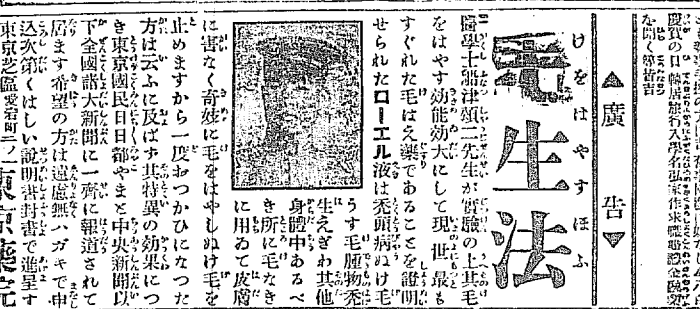 ▲廣告▼
けをはやすほふ
毛生法
醫學士船津頌二先生が實驗の上其毛
をはやす効能効大にして現世最も
すぐれた毛はえ藥であることを證明
せられたローエル液は禿頭病ぬけ毛
うす毛腫物禿
生えぎわ其他
身體中あるべ
き所に毛なき
に用ゐて皮膚
に害なく奇妙に毛をはやしぬけ毛を
止めますから一度おつかひになつた
方は云ふに及ばす其特異の効果につ
き東京國民日日都やまと中央新聞以
下全國諸大新聞に一齊に報道されて
居ます希望の方は遠慮無ハガキで申
込次第くはしい説明書封書で進呈す
東京芝區愛宕町二ノ一東京藥院